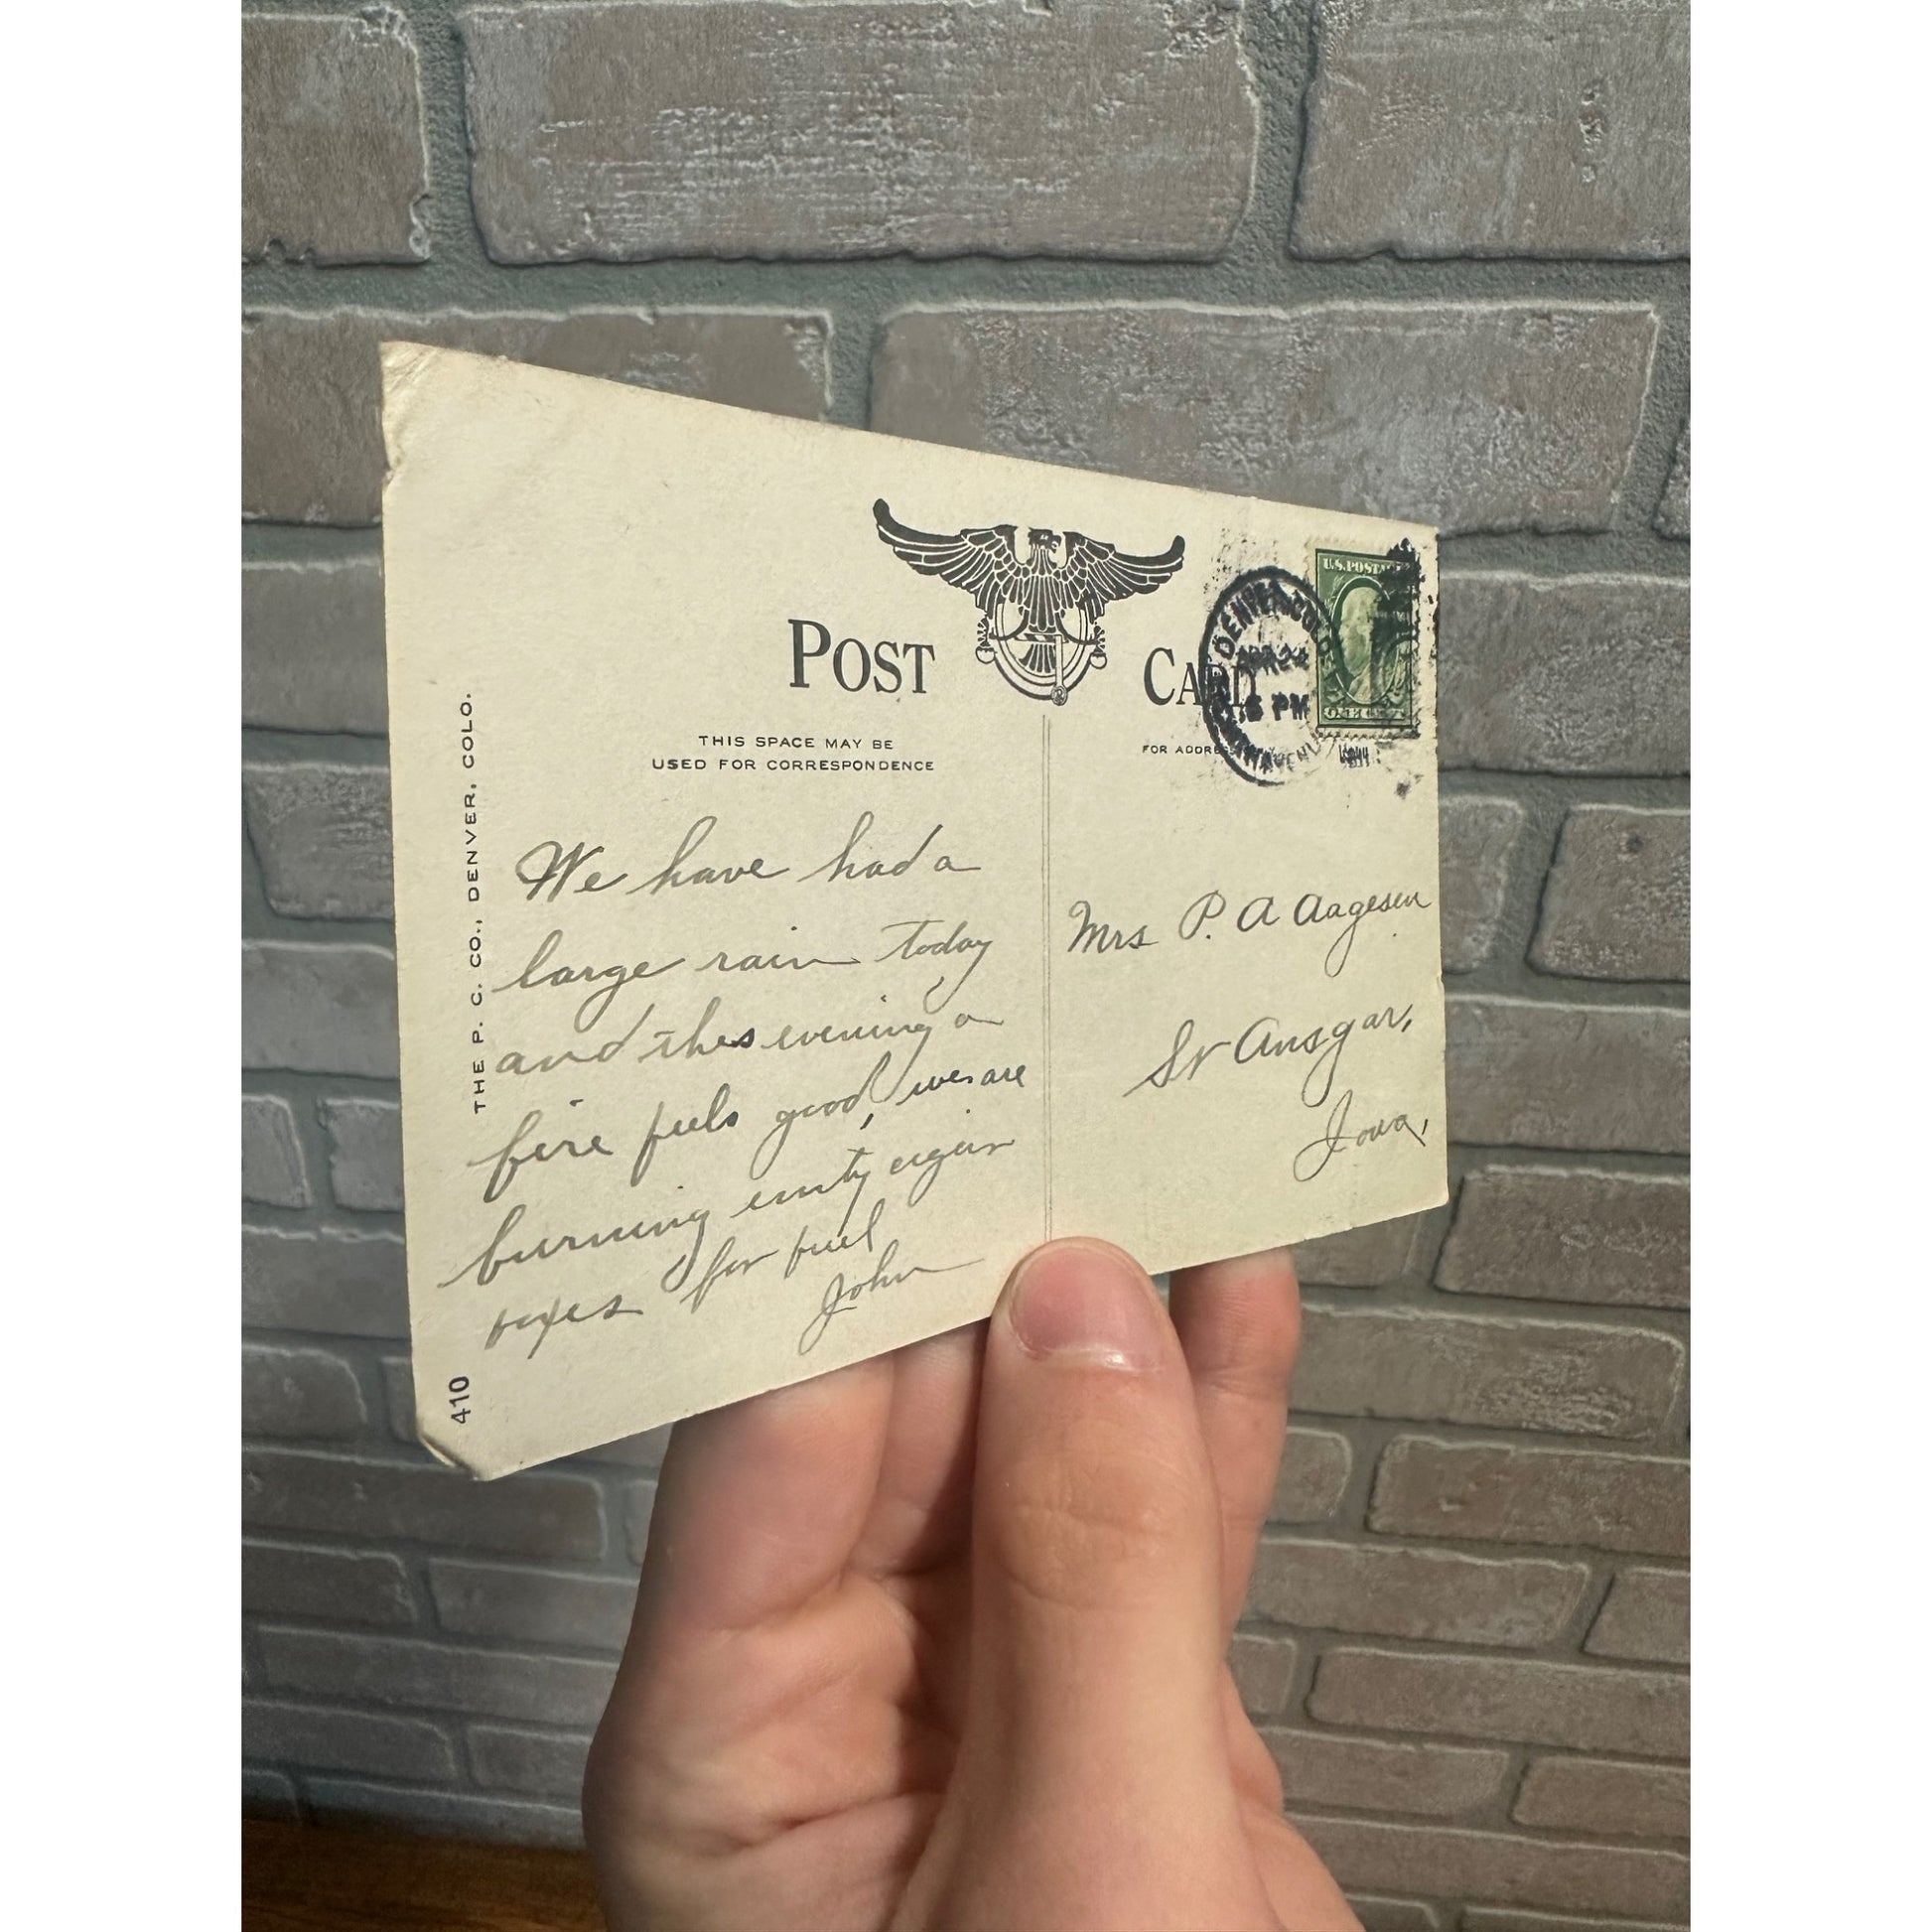 POST CARD
THIS SPACE MAY BE
USED FOR CORRESPONDENCE
FOR ADDRESS
U.S. POSTAGE
ONE CENT
DENVER, COLO.
APR 24
5 PM
THE P. C. CO., DENVER, COLO.
410
We have had a
large rain today
and this evening a
fire feels good, we are
burning emty cigar
boxes for fuel
John
Mrs P. A Aagesen
St Ansgar,
Iowa,